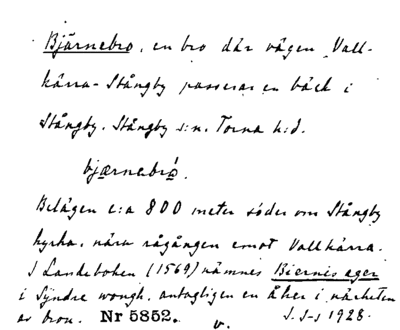 Bjärnebro, en bro där vägen Vall-
kärra-Stångby passerar en bäck i
Stångby. Stångby s:n. Torna h:d.
bjærnebró.
Belägen c:a 800 meter söder om Stångby
kyrka, nära rågången emot Vallkärra.
I Landeboken (1569) nämnes Biernis ager
i Syndre wongh, antagligen en åker i närheten
av bron. Nr 5852. v. S. J-s 1928.